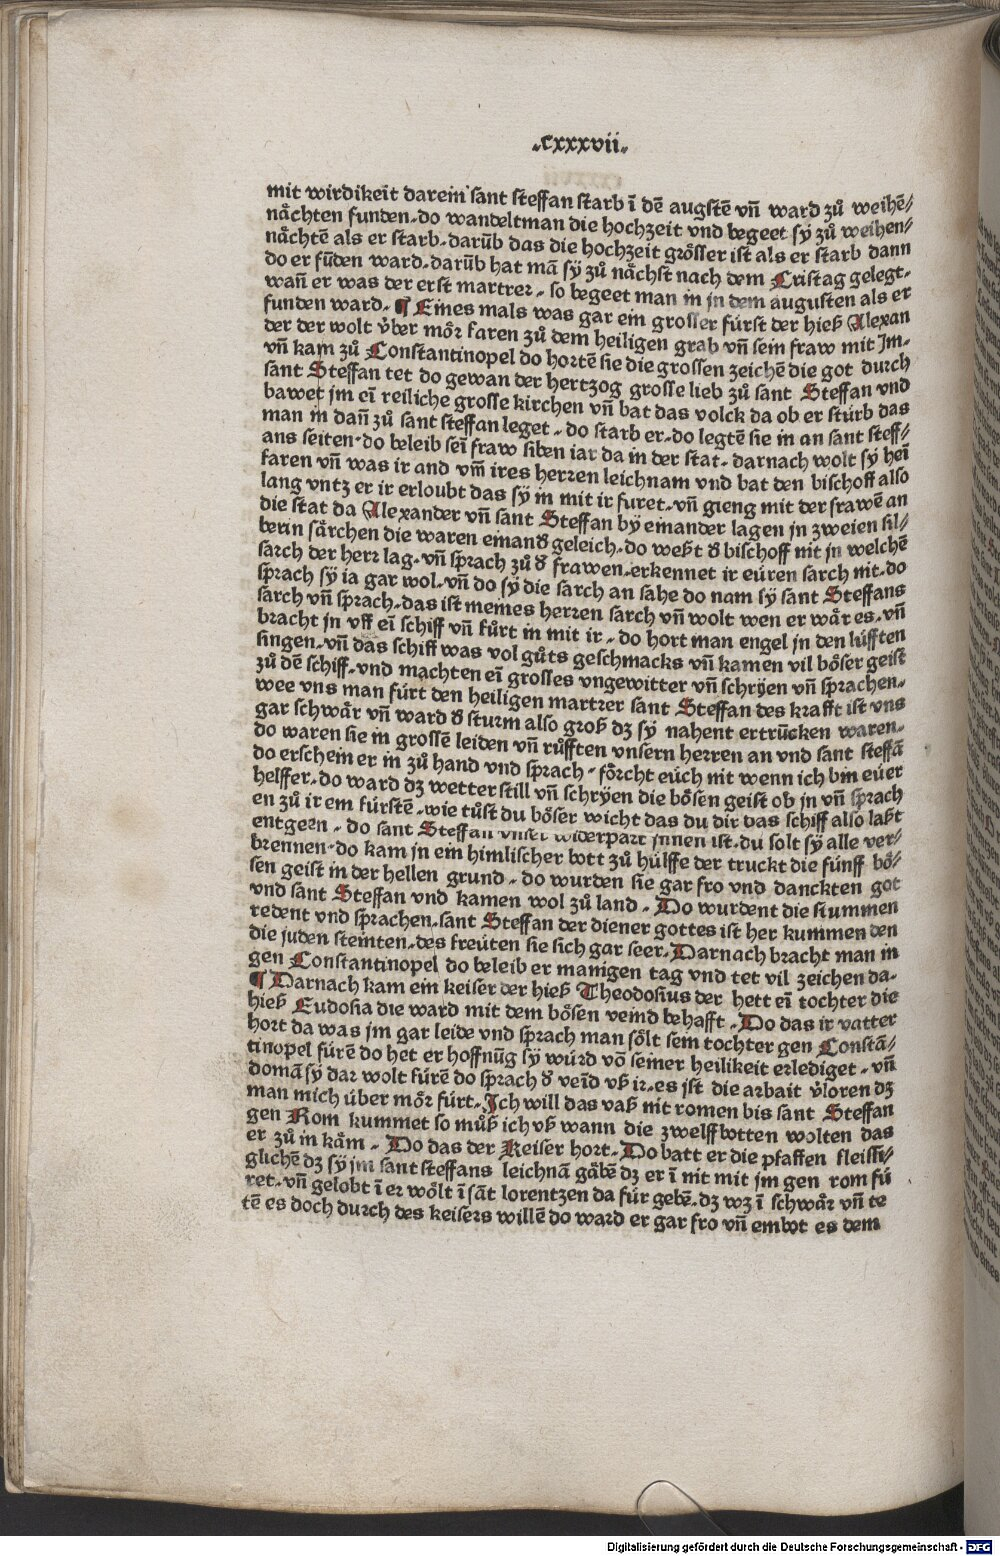 .cxxxvii.
mit wirdikeit darein sant steffan starb ī dē augstē vn̄ ward zů weihē⸗
nächten funden. do wandeltman die hochzeit vnd begeet sy̋ zů weihen⸗
nächtē als er starb. darūb das die hochzeit grösser ist als er starb dann
do er fūden ward. darūb hat mā sy̋ zů nächst nach dem Cristag gelegt.
wan̄ er was der erst martrer. so begeet man in jn dem augusten als er
funden ward. ¶ Eines mals was gar ein grosser fürst der hieß Alexan
der der wolt v̈ber mör faren zů dem heiligen grab vn̄ sein fraw mit Jm.
vn̄ kam zů Constantinopel do hortē sie die grossen zeichē die got durch
sant Steffan tet do gewan der hertzog grosse lieb zů sant Steffan vnd
bawet jm eī reiliche grosse kirchen vn̄ bat das volck da ob er stürb das
man in dan̄ zů sant steffan leget. do starb er. do legtē sie in an sant steff⸗
ans seiten. do beleib seī fraw siben iar da in der stat. darnach wolt sy̋ heī
faren vn̄ was ir and vm̄ ires herzen leichnam vnd bat den bischoff also
lang vntz er ir erloubt das sy̋ in mit ir furet. vn̄ gieng mit der frawē an
die stat da Alexander vn̄ sant Steffan by̋ einander lagen jn zweien sil⸗
berin särchen die waren einanð geleich. do weßt ð bischoff nit jn welchē
sarch der herr lag. vn̄ sprach zů ð frawen. erkennet ir eüren sarch nit. do
sprach sy̋ ia gar wol. vn̄ do sy̋ die sarch an sahe do nam sy̋ sant Steffans
sarch vn̄ sprach. das ist meines herzen sarch vn̄ wolt wen er wär es. vn̄
bracht jn vff eī schiff vn̄ fůrt in mit ir. do hort man engel jn den lüfften
singen. vn̄ das schiff was vol gůts geschmacks vn̄ kamen vil böser geist
zů dē schiff. vnd machten eī grosses vngewitter vn̄ schry̋en vn̄ sprachen.
wee vns man fürt den heiligen martrer sant Steffan des krafft ist vns
gar schwär vn̄ ward ð sturm also groß dz sy̋ nahent ertrūcken waren.
do waren sie in grossē leiden vn̄ růfften vnsern herren an vnd sant steffā
do erschein er in zů hand vnd sprach. förcht eüch nit wenn ich bin eüer
helffer. do ward dz wetter still vn̄ schry̋en die bösen geist ob jn vn̄ sprach
en zů ir em fürstē. wie tůst du böser wicht das du dir das schiff also laßt
entgeen. do sant Steffan vnser widerpart jnnen ist. du solt sy̋ alle ver⸗
brennen. do kam jn ein himlischer bott zů hülffe der truckt die fünff bö⸗
sen geist in der hellen grund. do wurden sie gar fro vnd danckten got
vnd sant Steffan vnd kamen wol zů land. Do wurdent die stummen
redent vnd sprachen. sant Steffan der diener gottes ist her kummen den
die juden steinten. des freüten sie sich gar seer. Darnach bracht man in
gen Constantinopel do beleib er manigen tag vnd tet vil zeichen da.
¶ Darnach kam ein keiser der hieß Theodosius der hett eī tochter die
hieß Eudosia die ward mit dem bösen veind behafft. Do das ir vatter
hort da was jm gar leide vnd sprach man sölt sein tochter gen Constā⸗
tinopel fürē do het er hoffnūg sy̋ würd vō seiner heilikeit erlediget. vn̄
domā sy̋ dar wolt fürē do sprach ð veīd vß ir. es jst die arbait v̈loren dz
man mich über mör fürt. Ich will das vaß nit romen bis sant Steffan
gen Rom kummet so můß ich vß wann die zwelffbotten wolten das
er zů in käm. Do das der Keiser hort. Do batt er die pfaffen fleissi⸗
glichē dz sy̋ jm sant steffans leichnā gäbē dz er ī nit mit jm gen rom fü
ret. vn̄ gelobt ī er wölt ī sāt lorentzen da für gebē. dz wz ī schwär vn̄ te
tē es doch durch des keisers willē do ward er gar fro vn̄ embot es dem
Digitalisierung gefördert durch die Deutsche Forschungsgemeinschaft - DFG